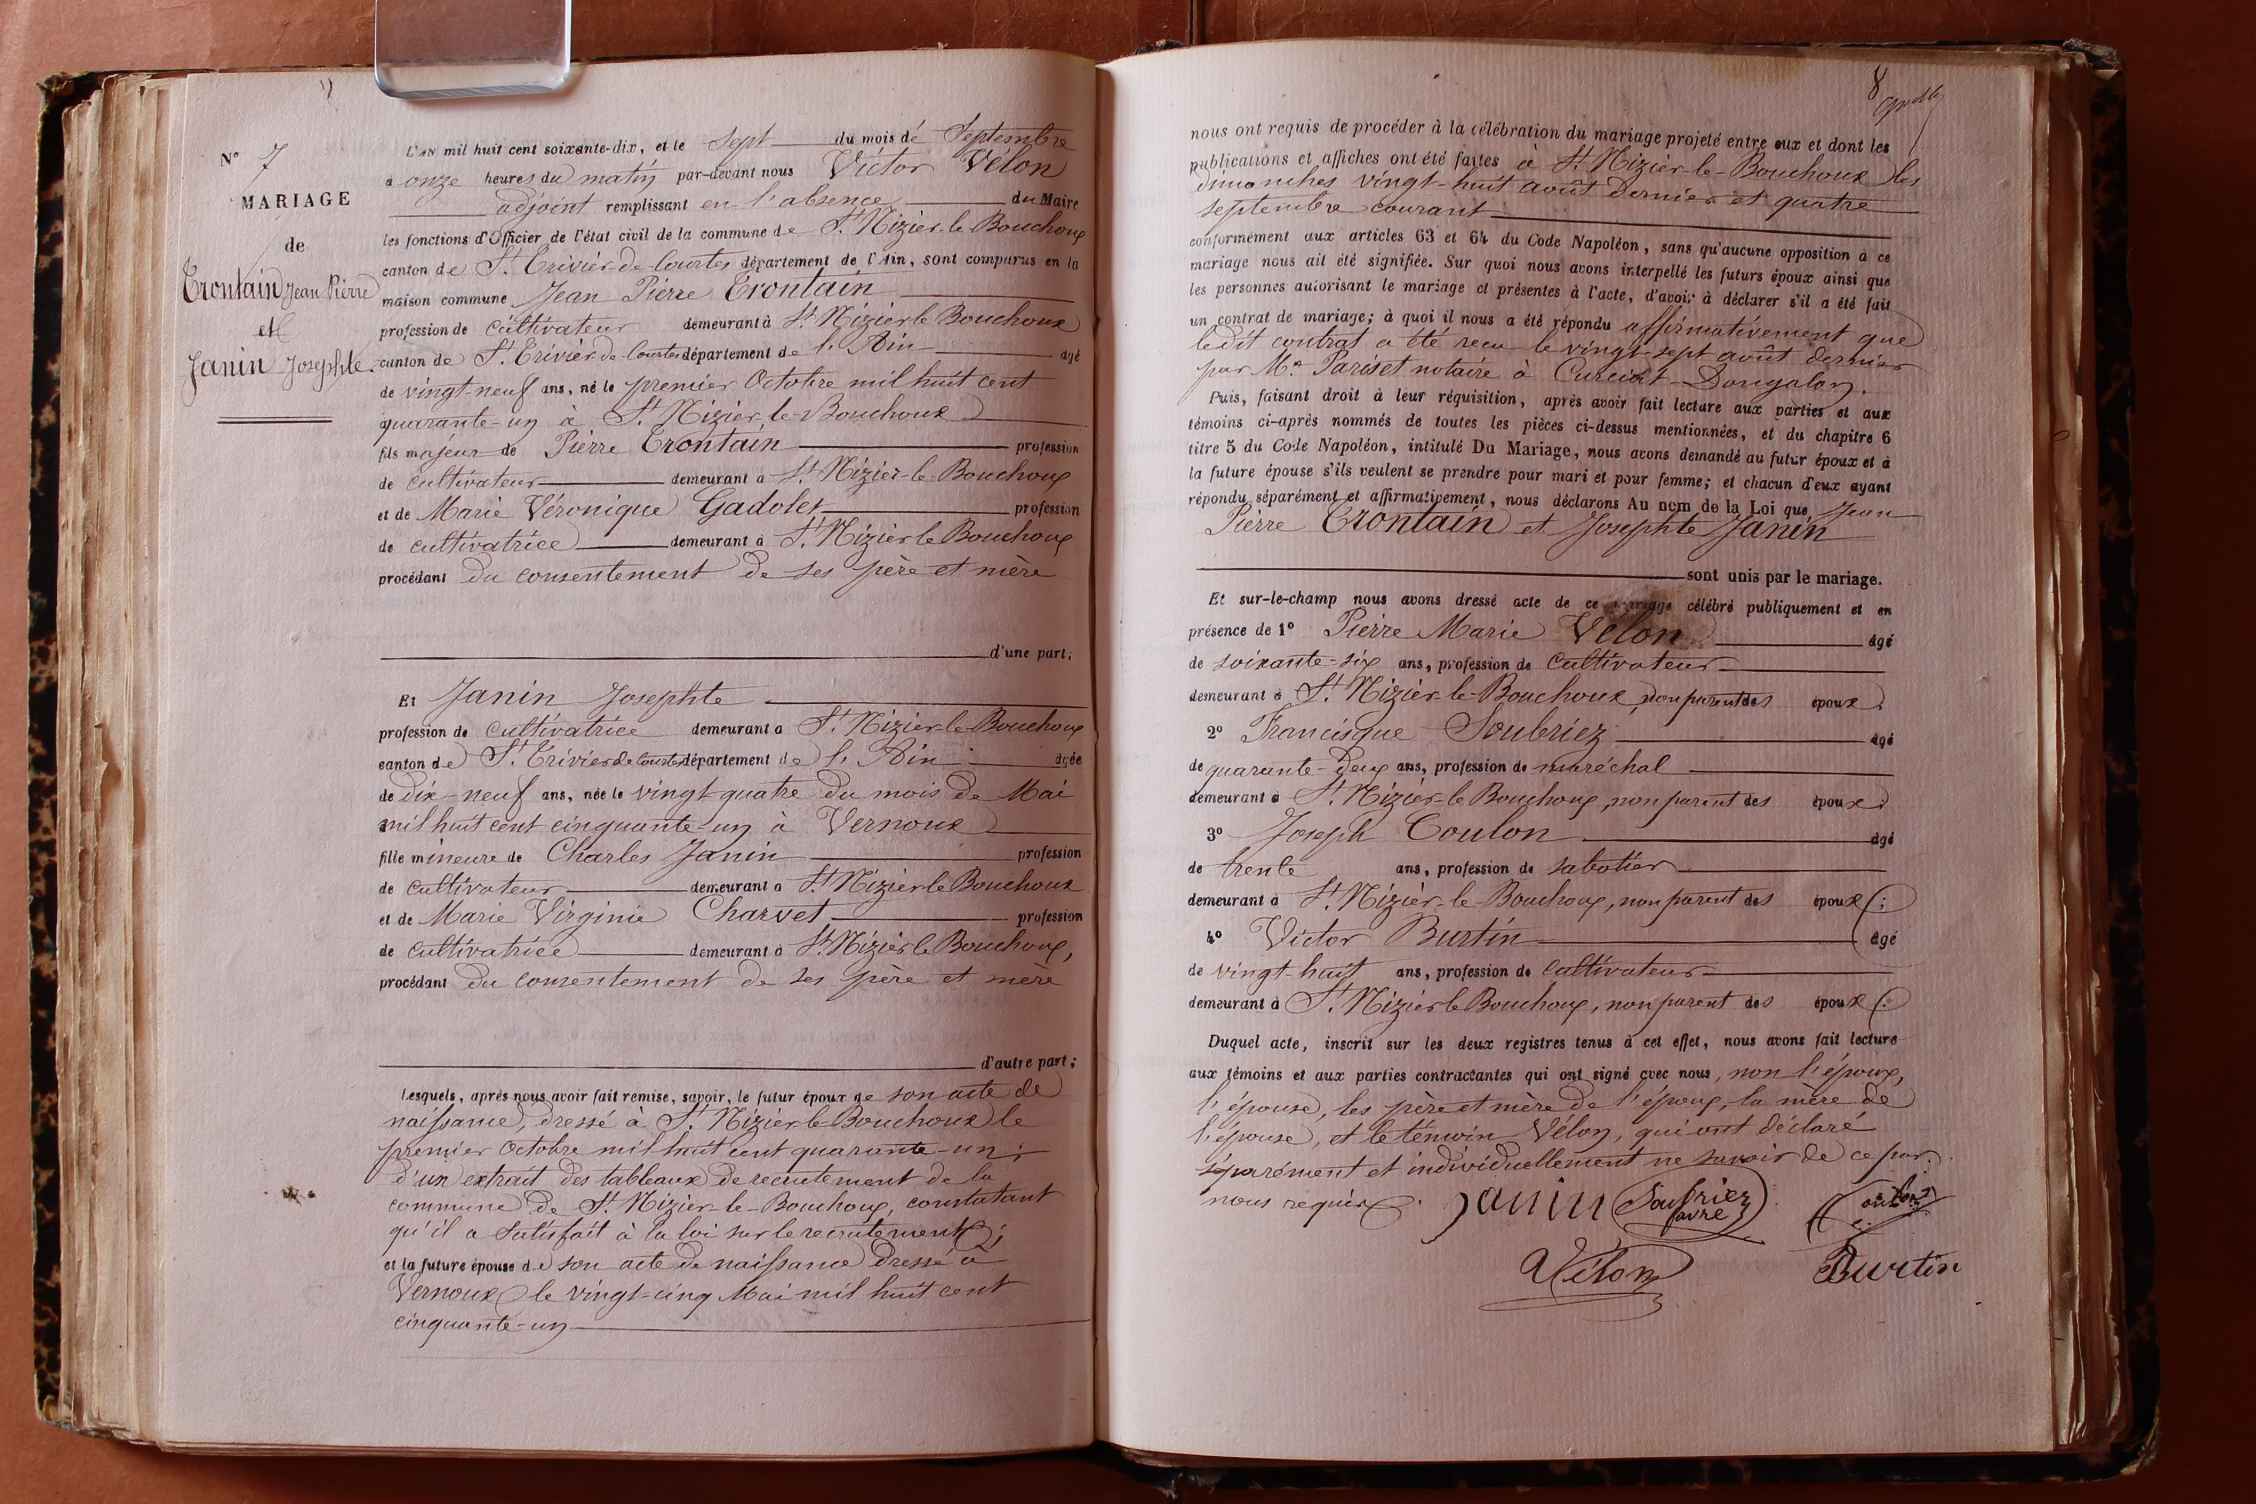 N° 7
MARIAGE
de
Trontain Jean Pierre
et
Janin Josephte.
L'AN mil huit cent soixante-dix, et le sept du mois de Septembre
à onze heures du matin par-devant nous Victor Vélon
adjoint remplissant en l'absence du Maire
les fonctions d'Officier de l'état civil de la commune de St Nizier-le-Bouchoux
canton de St Trivier-de-Courtes département de l'Ain, sont comparus en la
maison commune Jean Pierre Trontain
profession de cultivateur demeurant à St Nizier le Bouchoux
canton de St Trivier-de-Courtes département de l'Ain âgé
de vingt-neuf ans, né le premier Octobre mil huit cent
quarante-un à St Nizier-le-Bouchoux
fils majeur de Pierre Trontain profession
de cultivateur demeurant à St Nizier-le-Bouchoux
et de Marie Véronique Gadolet profession
de cultivatrice demeurant à St Nizier le Bouchoux
procédant du consentement de ses père et mère
d'une part;
Et Janin Josephte
profession de cultivatrice demeurant à St Nizier-le-Bouchoux
canton de St Trivier de Courtes département de l'Ain âgée
de dix-neuf ans, née le vingt-quatre du mois de Mai
mil huit cent cinquante-un à Vernoux
fille mineure de Charles Janin profession
de cultivateur demeurant à St Nizier le Bouchoux
et de Marie Virginie Charvet profession
de cultivatrice demeurant à St Nizier le Bouchoux,
procédant du consentement de ses père et mère
d'autre part;
Lesquels, après nous avoir fait remise, savoir, le futur époux de son acte de
naissance, dressé à St Nizier le Bouchoux le
premier Octobre mil huit cent quarante-un;
d'un extrait des tableaux de recrutement de la
commune de St Nizier-le-Bouchoux, constatant
qu'il a satisfait à la loi sur le recrutement;
et la future épouse de son acte de naissance dressé à
Vernoux le vingt-cinq Mai mil huit cent
cinquante-un
8
nous ont requis de procéder à la célébration du mariage projeté entre eux et dont les
publications et affiches ont été faites à St Nizier-le-Bouchoux les
dimanches vingt-huit août dernier et quatre
septembre courant
conformément aux articles 63 et 64 du Code Napoléon, sans qu'aucune opposition à ce
mariage nous ait été signifiée. Sur quoi nous avons interpellé les futurs époux ainsi que
les personnes autorisant le mariage et présentes à l'acte, d'avoir à déclarer s'il a été fait
un contrat de mariage; à quoi il nous a été répondu affirmativement que
ledit contrat a été reçu le vingt-sept août dernier
par Me Pariset notaire à Curciat-Dongalon.
Puis, faisant droit à leur réquisition, après avoir fait lecture aux parties et aux
témoins ci-après nommés de toutes les pièces ci-dessus mentionnées, et du chapitre 6
titre 5 du Code Napoléon, intitulé Du Mariage, nous avons demandé au futur époux et à
la future épouse s'ils veulent se prendre pour mari et pour femme; et chacun d'eux ayant
répondu séparément et affirmativement, nous déclarons Au nom de la Loi que Jean
Pierre Trontain et Josephte Janin
sont unis par le mariage.
Et sur-le-champ nous avons dressé acte de ce mariage célébré publiquement et en
présence de 1° Pierre Marie Vélon âgé
de soixante-six ans, profession de cultivateur
demeurant à St Nizier-le-Bouchoux, non parent des époux;
2° Francisque Soubriez âgé
de quarante-deux ans, profession de maréchal
demeurant à St Nizier-le Bouchoux, non parent des époux;
3° Joseph Coulon âgé
de trente ans, profession de sabotier
demeurant à St Nizier-le-Bouchoux, non parent des époux;
4° Victor Burtin âgé
de vingt-huit ans, profession de cultivateur
demeurant à St Nizier le Bouchoux, non parent des époux;
Duquel acte, inscrit sur les deux registres tenus à cet effet, nous avons fait lecture
aux témoins et aux parties contractantes qui ont signé avec nous, non l'époux,
l'épouse, les père et mère de l'époux, la mère de
l'épouse, et le témoin Vélon, qui ont déclaré
séparément et individuellement ne savoir de ce par
nous requis.
Janin Soubriez Coulon
Vélon Burtin